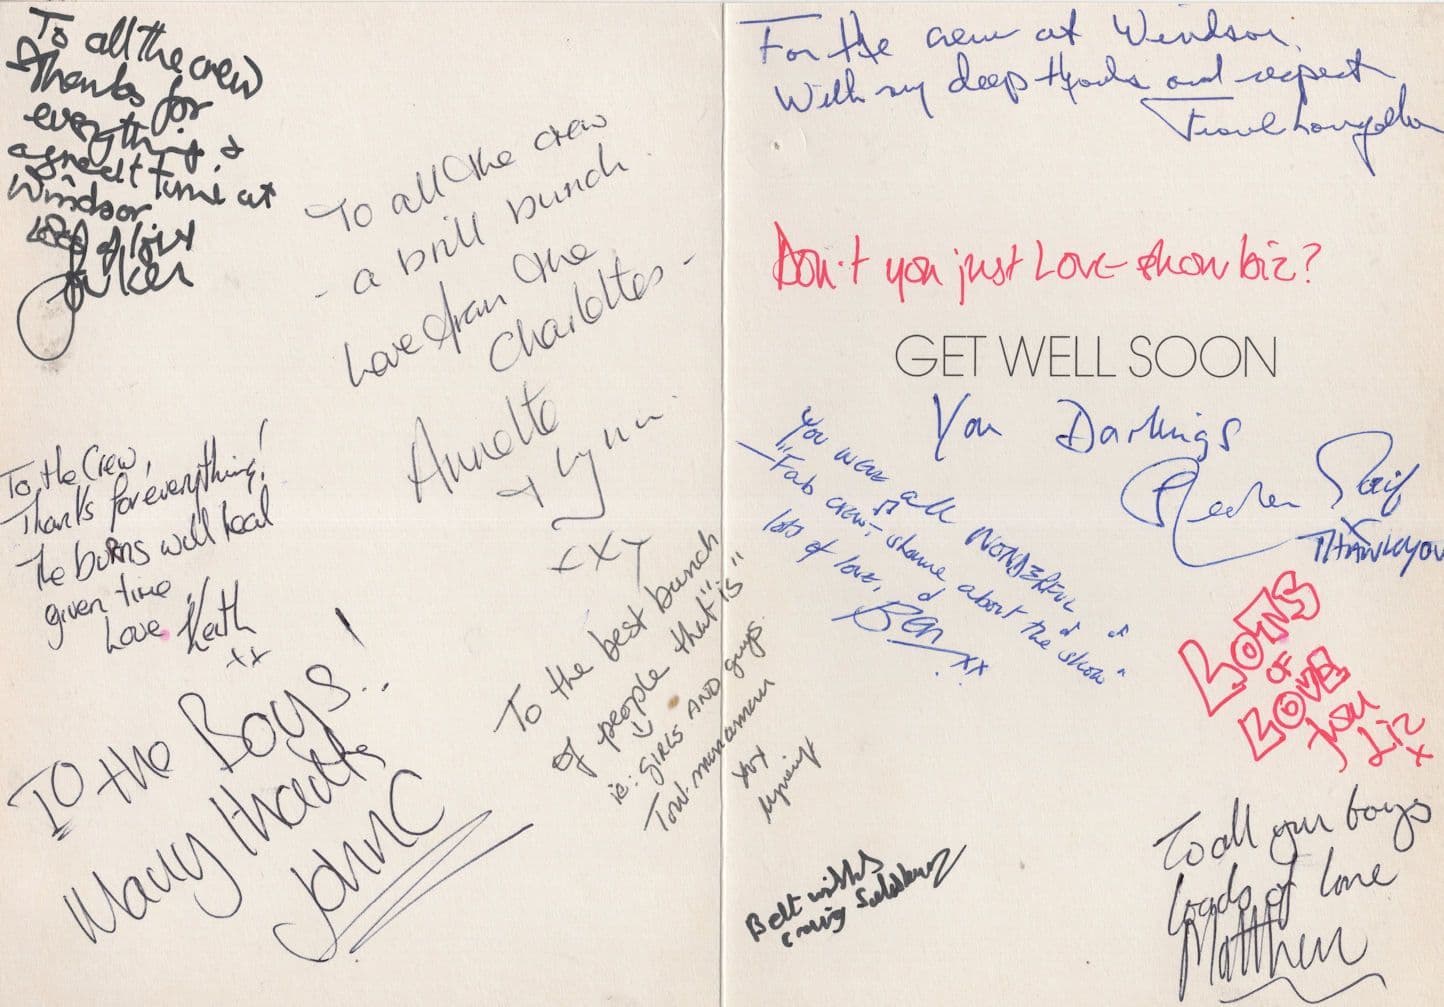 To all the crew
Thanks for
everything &
a great time at
Windsor
lots of love
To all the crew
- a brill bunch -
Love from the
Charlottes -
Annette
+ Lynn.
xxx
To the Crew,
Thanks for everything!
The burns will heal
given time!
Love Keith
xx
To the best bunch
of people that "is"
ie: GIRLS AND guys.
xxx
TO the Boys!..
Many thanks
John C
For the crew at Windsor.
With my deep thanks and respect
Don't you just LOVE show biz?
GET WELL SOON
You Darlings
THANKYOU
You were all WONDERFUL
"Fab crew, shame about the show"
lots of love,
Ben xx
LOTS
OF
LOVE
from
Liz
x
Best wishes
Craig
To all you boys
loads of love
Matthew